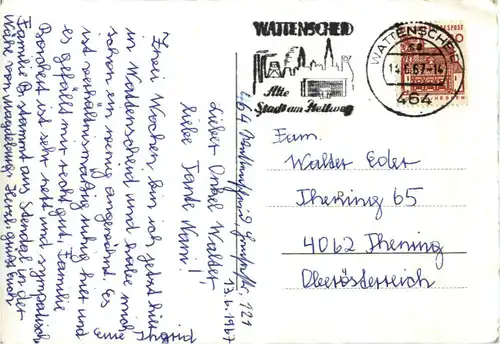 WATTENSCHEID
Alte
Stadt am Hellweg
WATTENSCHEID
14.6.67-14
464
13.6.1967
Lieber Onkel Walter,
liebe Tante Nani!
Zwei Wochen bin ich jetzt hier
in Wattenscheid und habe mich
schon ein wenig angewöhnt. Es
ist verhältnismäßig ruhig hier und
es gefällt mir recht gut. Familie
Borchert ist sehr nett und sympatisch
Familie B. stammt aus Stendal in der
Nähe von Magdeburg. Herzl. grüßt euch
eure Ingrid
Fam.
Walter Eder
Ihering 65
4062 Thening
Oberösterreich